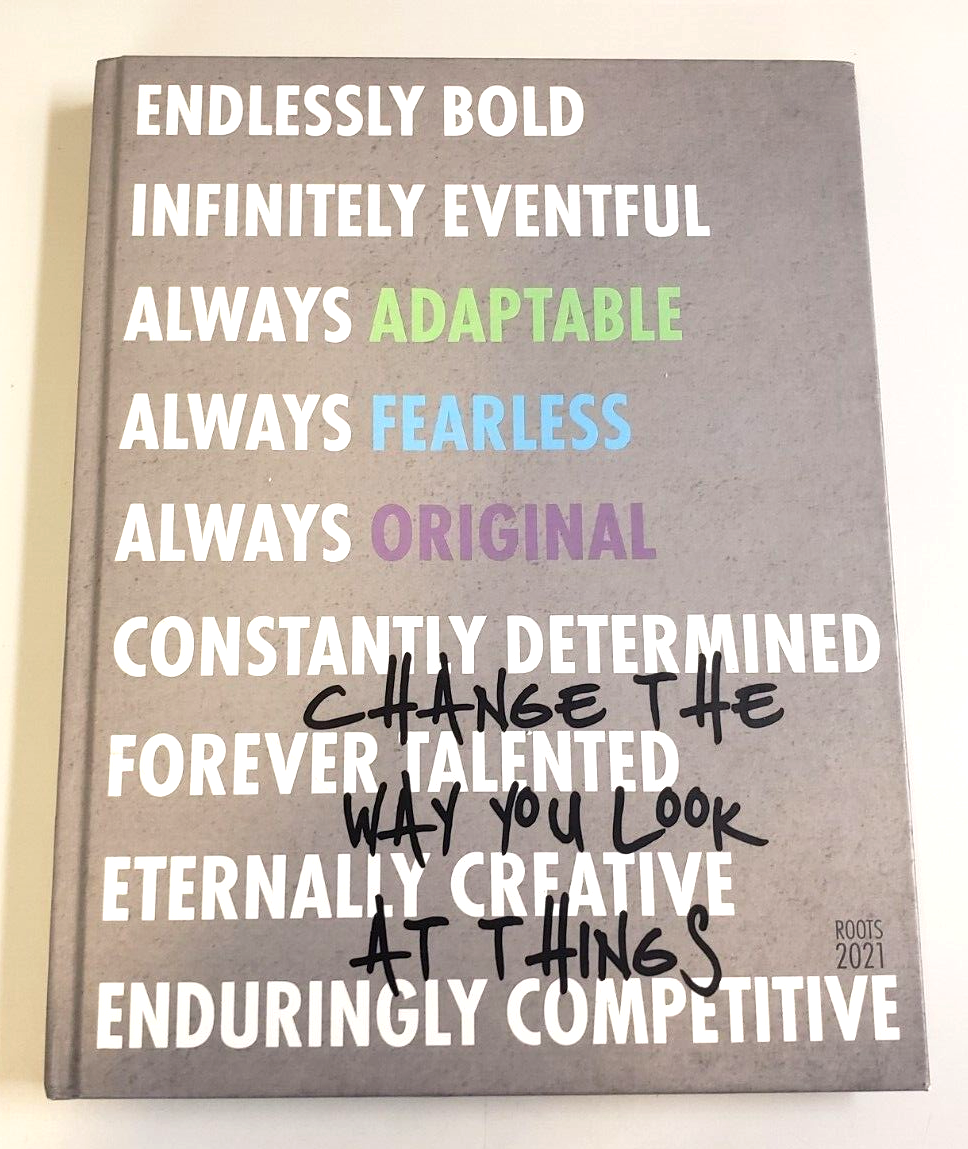 ENDLESSLY BOLD
INFINITELY EVENTFUL
ALWAYS ADAPTABLE
ALWAYS FEARLESS
ALWAYS ORIGINAL
CONSTANTLY DETERMINED
CHANGE THE
FOREVER TALENTED
WAY YOU LOOK
ETERNALLY CREATIVE
AT THINGS
ROOTS
2021
ENDURINGLY COMPETITIVE